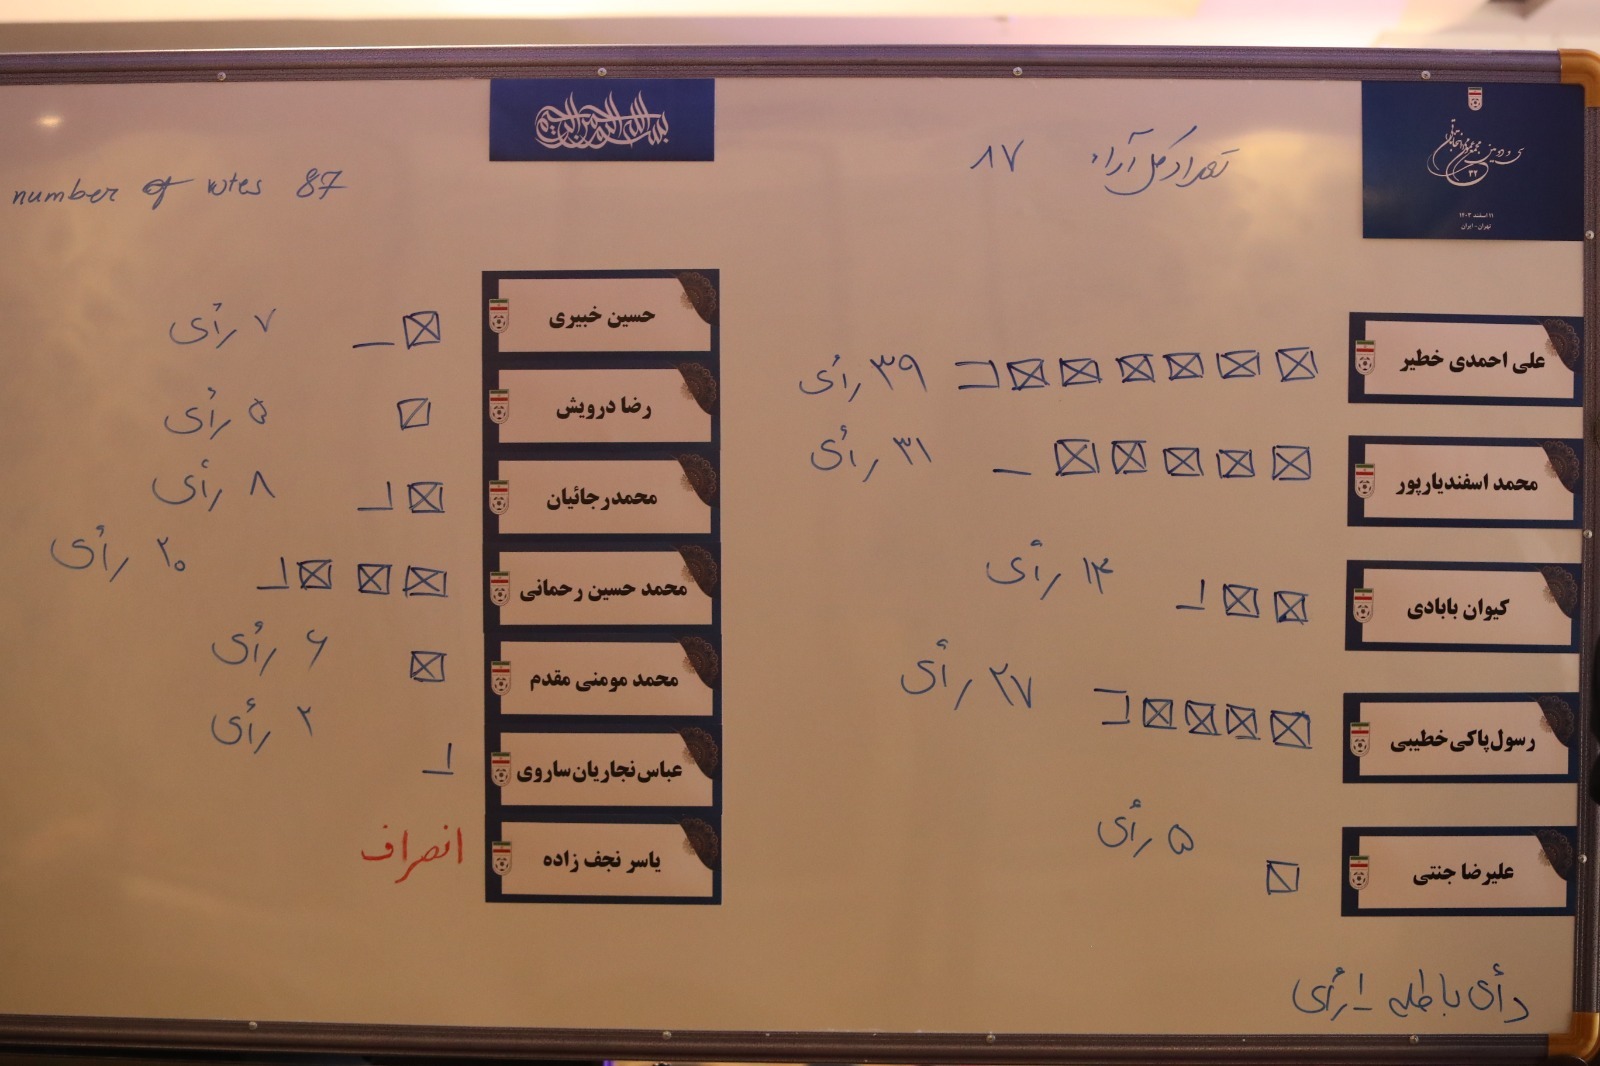 بسم الله الرحمن الرحیم
سی و دومین مجمع عمومی انتخاباتی
۳۲
۱۱ اسفند ۱۴۰۳
تهران - ایران
تعداد کل آراء ۸۷
number of votes 87
علی احمدی خطیر ۳۹ رأی
محمد اسفندیارپور ۳۱ رأی
کیوان بابادی ۱۴ رأی
رسول پاکی خطیبی ۲۷ رأی
علیرضا جنتی ۵ رأی
رأی باطله - ۱ رأی
حسین خبیری ۷ رأی
رضا درویش ۵ رأی
محمدرجائیان ۸ رأی
محمد حسین رحمانی ۲۰ رأی
محمد مومنی مقدم ۶ رأی
عباس نجاریان ساروی ۲ رأی
یاسر نجف زاده انصراف